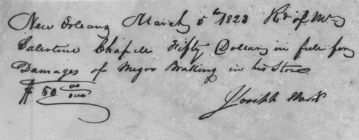 New Orleans March 5th 1823 Rd of Mr
Valentine Chapelle Fifty Dollars in full for
Damages of Negro Bratling in his Store
$ 50 00/100
Joseph